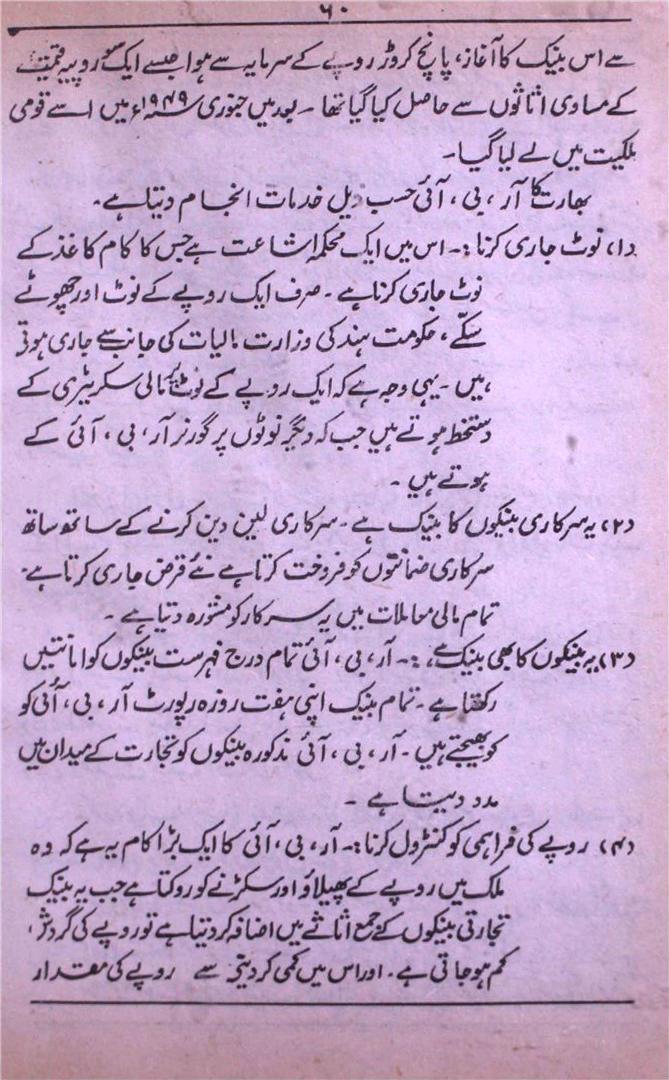 ۶۰
سے اس بینک کا آغاز، پانچ کروڑ روپے کے سرمایہ سے ہوا جسے ایک سو روپیہ قیمت
کے مساوی اثاثوں سے حاصل کیا گیا تھا ۔ بعد میں جنوری ۱۹۴۹ء میں اسے قومی
ملکیت میں لے لیا گیا۔
بھارت کا آر، بی، آئی حسب ذیل خدمات انجام دیتا ہے۔
(۱) نوٹ جاری کرنا :۔ اس میں ایک محکمہ اشاعت ہے جس کا کام کاغذ کے
نوٹ جاری کرنا ہے ۔ صرف ایک روپے کے نوٹ اور چھوٹے
سکّے، حکومت ہند کی وزارت مالیات کی جانب سے جاری ہوتی
ہیں ۔ یہی وجہ ہے کہ ایک روپے کے نوٹ پر مالی سکریٹری کے
دستخط ہوتے ہیں جب کہ دیگر نوٹوں پر گورنر آر، بی، آئی کے
ہوتے ہیں ۔
(۲) یہ سرکاری بینکوں کا بینک ہے ۔ سرکاری لین دین کرنے کے ساتھ ساتھ
سرکاری ضمانتوں کو فروخت کرتا ہے نئے قرض جاری کرتا ہے۔
تمام مالی معاملات میں یہ سرکار کو مشورہ دیتا ہے ۔
(۳) یہ بینکوں کا بھی بینک ہے :۔ آر، بی، آئی تمام درج فہرست بینکوں کو امانتیں
رکھتا ہے ۔ تمام بینک اپنی ہفت روزہ رپورٹ آر، بی، آئی کو
کو بھیجتے ہیں ۔ آر، بی، آئی مذکورہ بینکوں کو تجارت کے میدان میں
مدد دیتا ہے ۔
(۴) روپے کی فراہمی کو کنٹرول کرنا :۔ آر، بی، آئی کا ایک بڑا کام یہ ہے کہ وہ
ملک میں روپے کے پھیلاؤ اور سکڑنے کو روکتا ہے جب یہ بینک
تجارتی بینکوں کے جمع اثاثے میں اضافہ کر دیتا ہے تو روپے کی گردش،
کم ہو جاتی ہے ۔ اور اس میں کمی کر دینے سے روپے کی مقدار